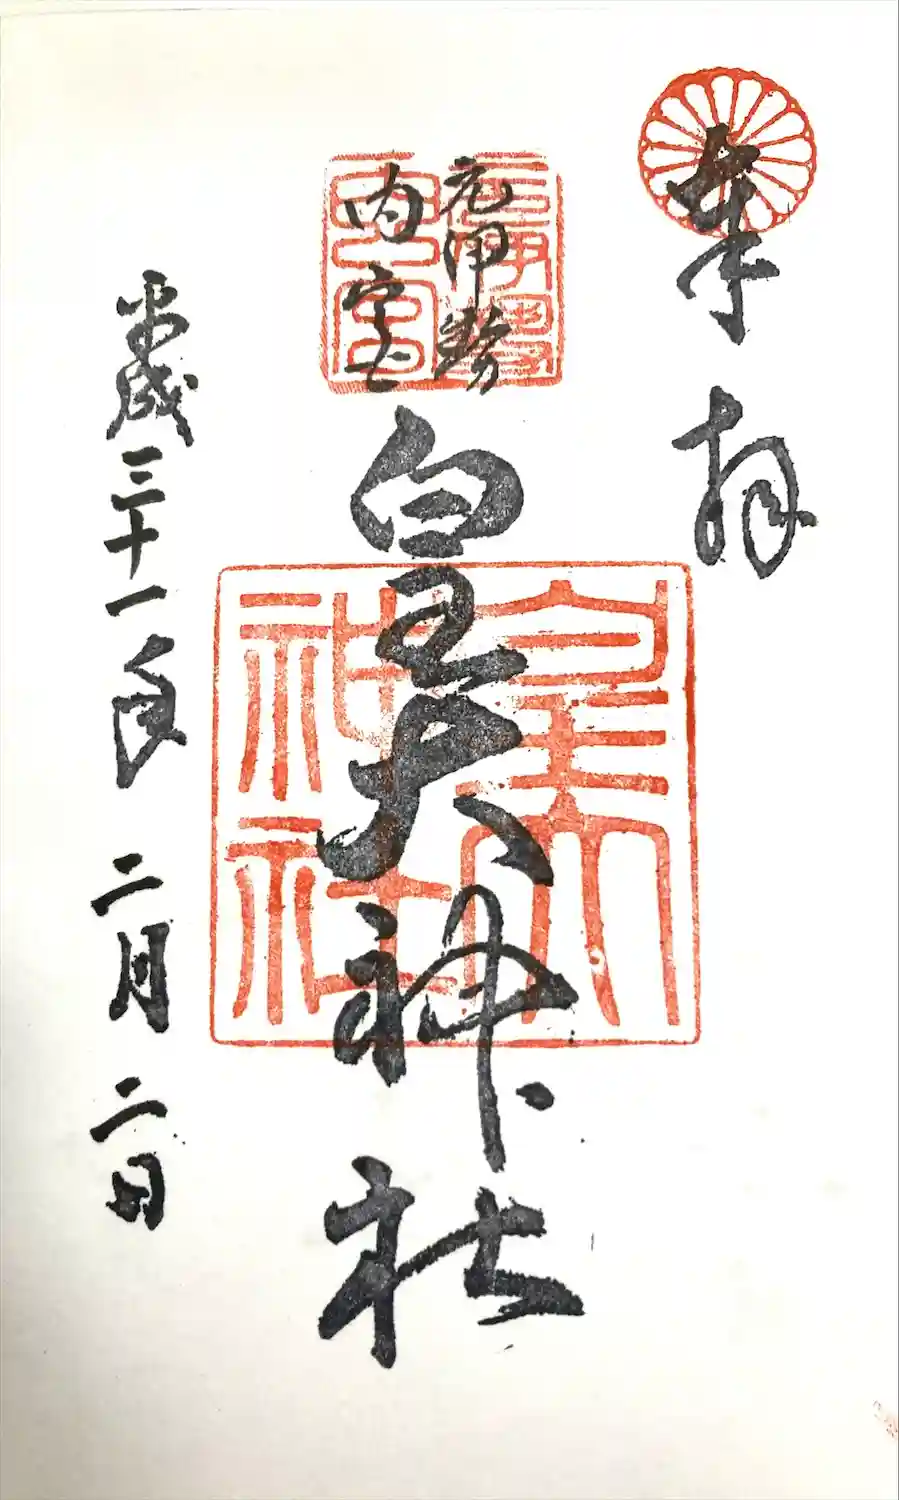 奉拝
元伊勢
内宮
皇大神社
元伊勢
内宮
皇大
神社
平成三十一年 二月 二日